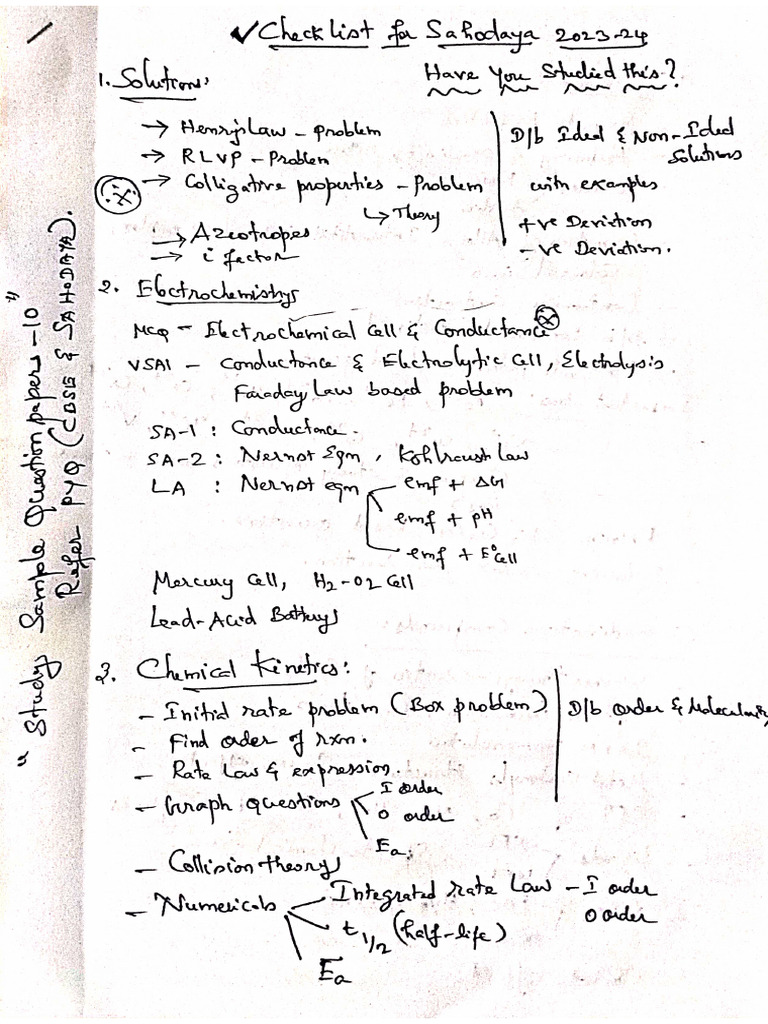 ✓ Checklist for Sahodaya 2023-24
Have you studied this?
1. Solutions:
→ Henry's Law - problem
→ RLVP - Problem
→ Colligative properties - Problem
↳ Theory
→ Azeotropes
→ i factor
D/b Ideal & Non-Ideal
Solutions
with examples
+ve Deviation
-ve Deviation.
2. Electrochemistry
MCQ - Electrochemical Cell & Conductance
VSAI - Conductance & Electrolytic Cell, Electrolysis
Faraday Law based problem
SA-1 : Conductance.
SA-2 : Nernst Eqn, Kohlraush Law
LA : Nernst eqn
emf + ΔG
emf + pH
emf + E°cell
Mercury Cell, H2-O2 Cell
Lead-Acid Battery
3. Chemical Kinetics:
- Initial rate problem (Box problem)
- Find order of rxn.
- Rate Law & expression.
- Graph questions
I order
0 order
Ea,
D/b order & Molecularity
- Collision theory
- Numericals
Integrated rate Law - I order
0 order
t1/2 (half-life)
Ea
"Study Sample Question papers -10"
Refer PYQ (CBSE & SAHODAYA).